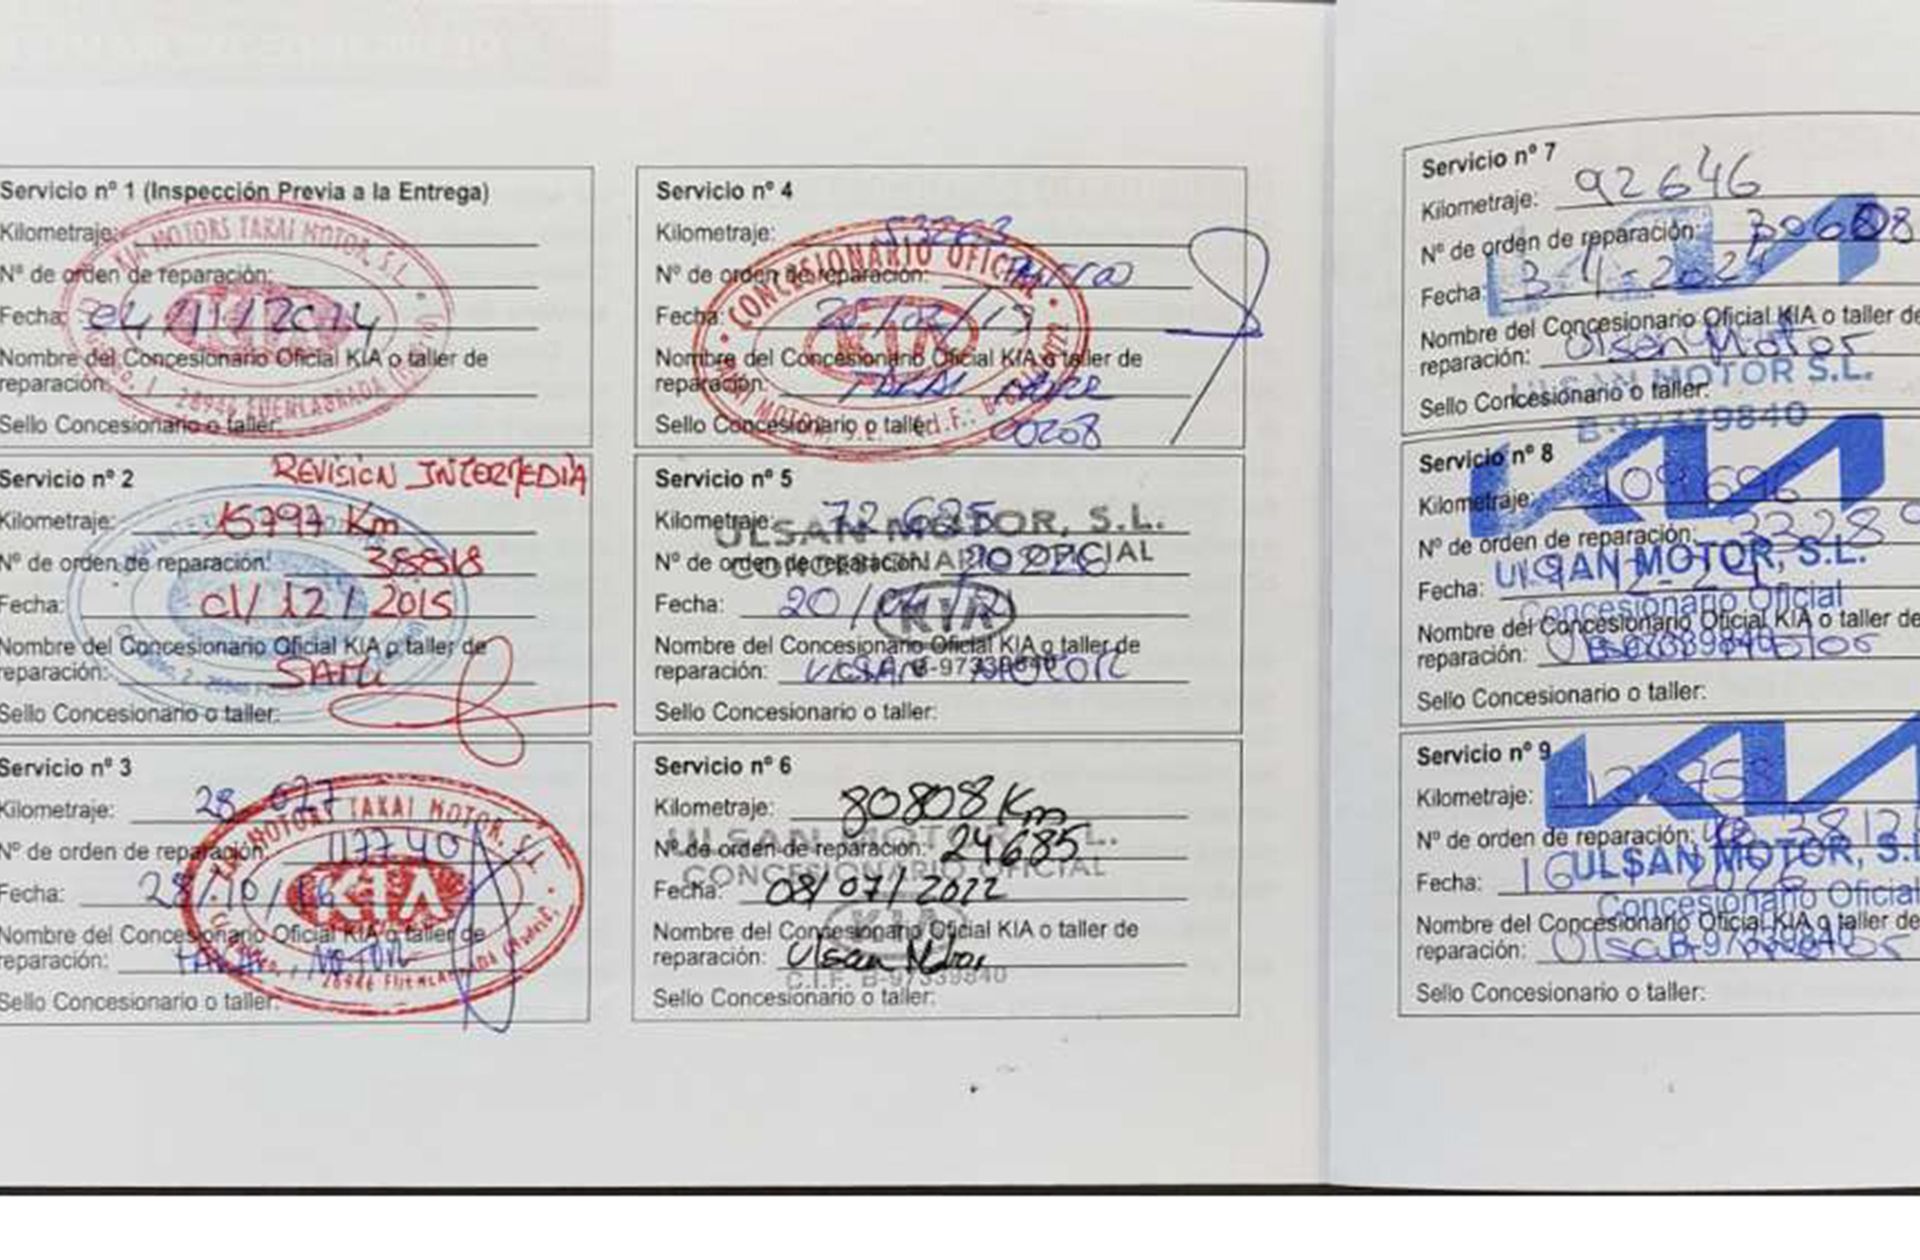 Servicio nº 1 (Inspección Previa a la Entrega)
Kilometraje:
Nº de orden de reparación:
Fecha: 04/11/2014
Nombre del Concesionario Oficial KIA o taller de
reparación:
Sello Concesionario o taller:
KIA MOTORS TAKAI MOTOR, S.L.
KIA
28946 FUENLABRADA
Servicio nº 2
REVISIÓN INTERMEDIA
Kilometraje: 15797 Km
Nº de orden de reparación: 38818
Fecha: 01/12/2015
Nombre del Concesionario Oficial KIA o taller de
reparación:
Sello Concesionario o taller:
Servicio nº 3
Kilometraje: 28.077
Nº de orden de reparación: 117740
Fecha: 28/10/16
Nombre del Concesionario Oficial KIA o taller de
reparación: TAKAI MOTOR
Sello Concesionario o taller:
TAKAI MOTOR, S.L.
KIA
28946 FUENLABRADA (Madrid)
Servicio nº 4
Kilometraje:
Nº de orden de reparación:
Fecha:
Nombre del Concesionario Oficial KIA o taller de
reparación:
Sello Concesionario o taller:
00208
CONCESIONARIO OFICIAL
KIA
MOTOR, S.L.
Servicio nº 5
Kilometraje:
Nº de orden de reparación:
Fecha: 20/
Nombre del Concesionario Oficial KIA o taller de
reparación: ULSAN MOTOR
Sello Concesionario o taller:
ULSAN MOTOR, S.L.
CONCESIONARIO OFICIAL
KIA
B-97339840
Servicio nº 6
Kilometraje: 80808 Km
Nº de orden de reparación: 24685
Fecha: 08/07/2022
Nombre del Concesionario Oficial KIA o taller de
reparación: Ulsan Motor
Sello Concesionario o taller:
ULSAN MOTOR, S.L.
CONCESIONARIO OFICIAL
KIA
C.I.F. B-97339840
Servicio nº 7
Kilometraje: 92646
Nº de orden de reparación: 30608
Fecha:
Nombre del Concesionario Oficial KIA o taller de
reparación: Ulsan Motor
Sello Concesionario o taller:
ULSAN MOTOR S.L.
B-97339840
Servicio nº 8
Kilometraje: 109696
Nº de orden de reparación: 33289
Fecha:
Nombre del Concesionario Oficial KIA o taller de
reparación:
Sello Concesionario o taller:
KIA
ULSAN MOTOR, S.L.
Concesionario Oficial
B-97339840
Servicio nº 9
Kilometraje:
Nº de orden de reparación:
Fecha: 16
Nombre del Concesionario Oficial KIA o taller de
reparación: Ulsan Motor
Sello Concesionario o taller:
KIA
ULSAN MOTOR, S.L
Concesionario Oficial
B-97339840